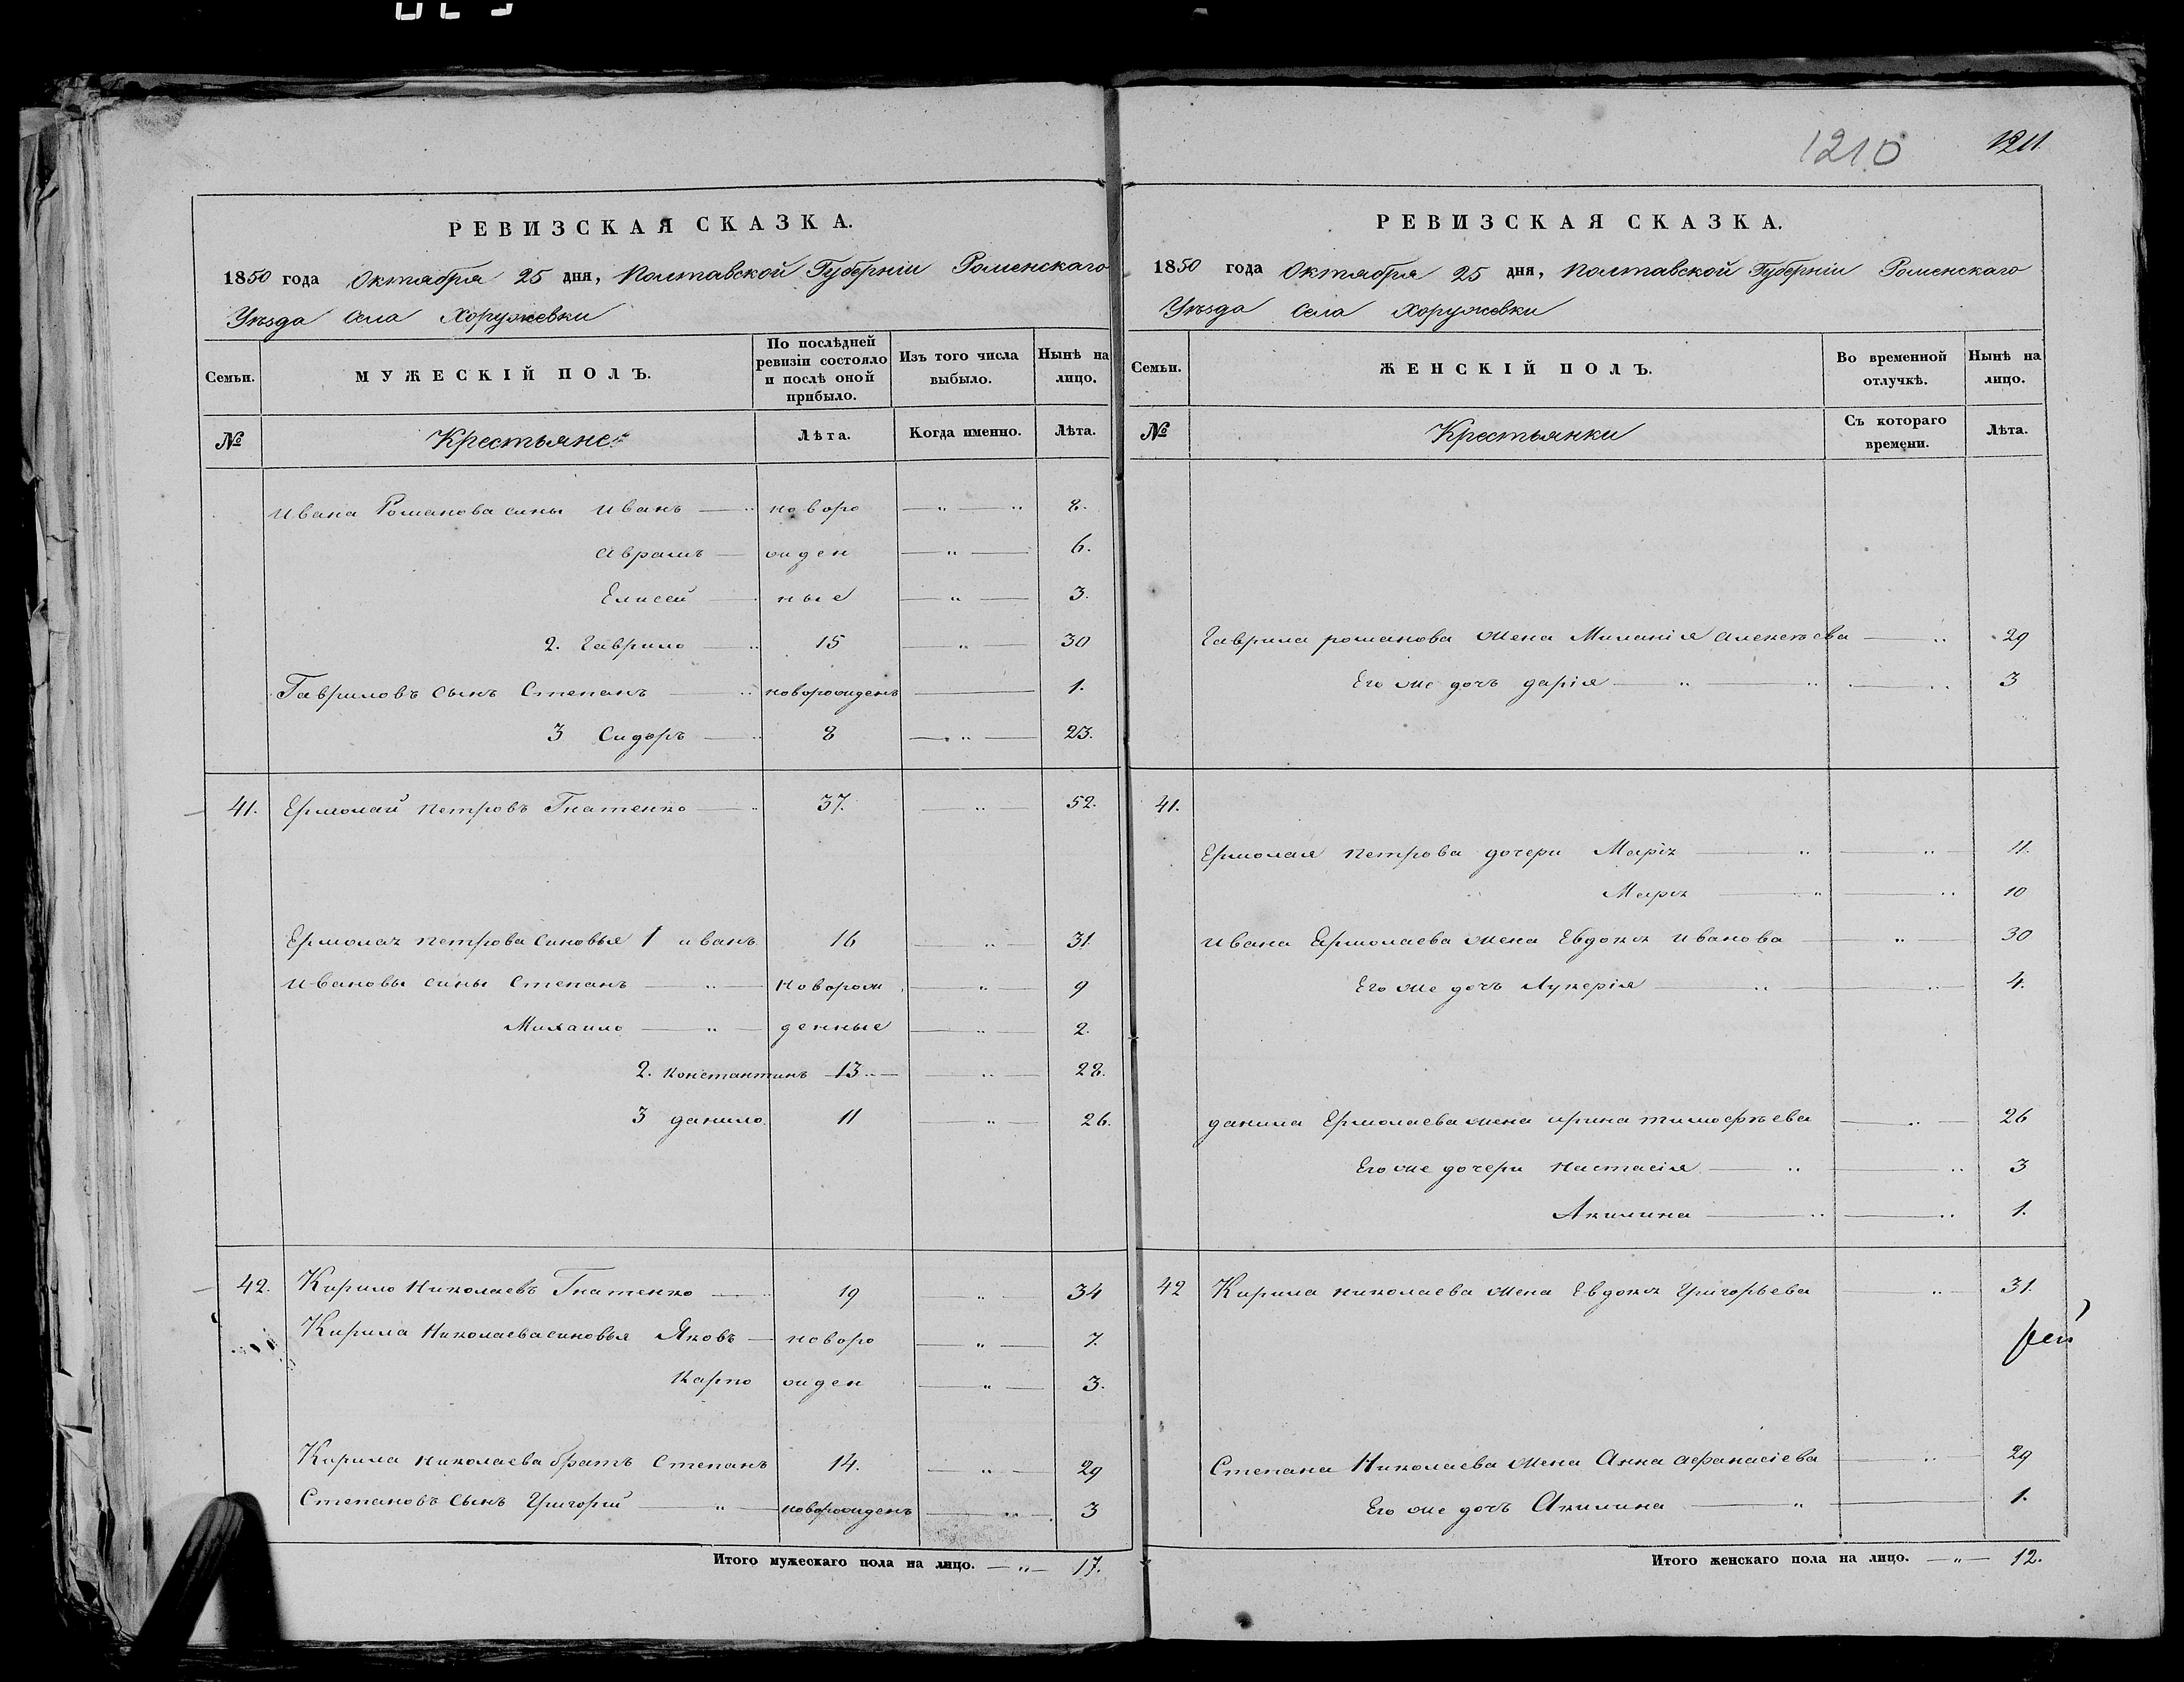 РЕВИЗСКАЯ СКАЗКА.
1850 года Октября 25 дня, Полтавской Губерніи Роменскаго
Уѣзда Села Хоружевки
Семьи. МУЖЕСКІЙ ПОЛЪ. По послѣдней ревизіи состояло и послѣ оной прибыло. Изъ того числа выбыло. Нынѣ на лицо.
№ Крестьяне Лѣта. Когда именно. Лѣта.
Ивана Романова сины Иванъ — новоро — „ — 8.
Аврамъ — жден — „ — 6.
Елисей — ные — „ — 3.
2. Гаврило — 15 — „ — 30
Гавриловъ сынъ Степанъ — новорожденъ — 1.
3 Сидоръ — 8 — „ — 23.
41. Ермолай Петровъ Гнатенко — 37. „ 52.
Ермолая Петрова синовья 1 Иванъ 16 — „ — 31.
Ивановы сины Степанъ — „ — новорож — „ — 9
Михаило — „ — денные — „ — 2.
2. Константинъ — 13 — „ — 28.
3 Данило 11 — „ — 26.
42. Кирило Николаевъ Гнатенко — 19 — „ — 34
Кирила Николаева синовья Яковъ — новоро — „ — 7.
Карпо жден — „ — 3.
Кирила Николаева братъ Степанъ 14. — „ — 29
Степановъ сынъ Григорій — „ — новорожденъ — „ — 3
Итого мужескаго пола на лицо. — „ — 17.
1210 1211.
РЕВИЗСКАЯ СКАЗКА.
1850 года Октября 25 дня, Полтавской Губерніи Роменскаго
Уѣзда Села Хоружевки
Семьи. ЖЕНСКІЙ ПОЛЪ. Во временной отлучкѣ. Нынѣ на лицо.
№ Крестьянки Съ котораго времени. Лѣта.
Гаврила Романова жена Миланія Алексѣева — „ 29
Его же дочъ Дарія — „ — 3
41.
Ермолая Петрова дочери Марія — „ — „ — 11.
Марія — „ — „ 10
Ивана Ермолаева жена Евдокія Иванова — „ — 30
Его же дочъ Лукерія — „ — „ — 4.
Данила Ермолаева жена Ирина Тимофѣева — „ — 26
Его же дочери Настасія — „ — „ 3
Акилина — „ — „ 1.
42 Кирила Николаева жена Евдокія Григорьева — „ — 31.
Степана Николаева жена Анна Афанасіева — „ — 29
Его же дочъ Акилина — „ — 1.
Итого женскаго пола на лицо. — „ — 12.